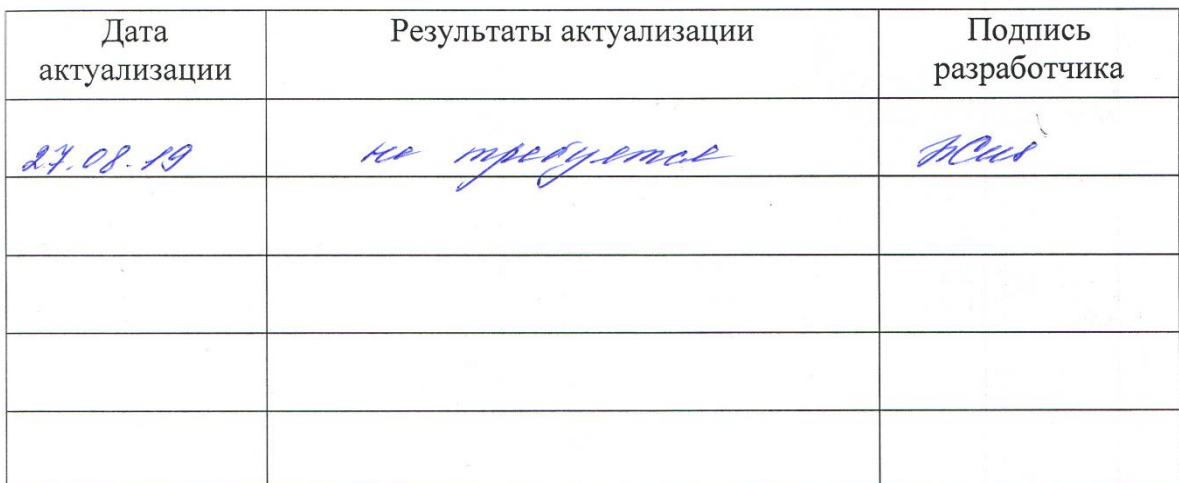 Дата актуализации
Результаты актуализации
Подпись разработчика
27.08.19
не требуется